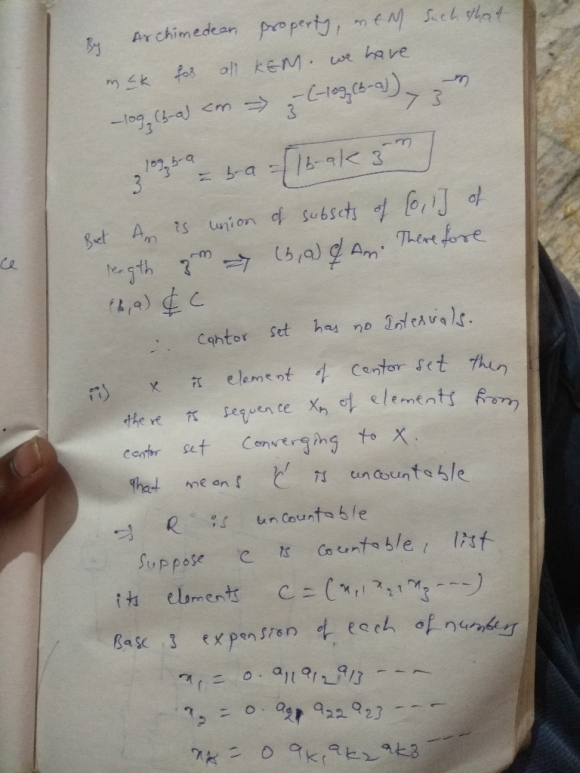 By Archimedean property, m ∈ M such that
m ≤ k for all k ∈ M. we have
-log₃(b-a) < m ⟹ 3^{-(-log₃(b-a))} > 3^{-m}
3^{log₃ b-a} = b-a = |b-a| < 3^{-m}
But Aₘ is union of subsets of [0,1] of
length 3^{-m} ⟹ (b,a) ⊄ Aₘ. Therefore
(b,a) ⊄ C
∴ Cantor set has no Intervals.
ii) x is element of cantor set then
there is sequence xₙ of elements from
cantor set Converging to x.
That means 'C' is uncountable
⟹ R is uncountable
Suppose C is countable, list
its elements C = (x₁, x₂, x₃ ---)
Base 3 expansion of each of numbers
x₁ = 0. a₁₁ a₁₂ a₁₃ ---
x₂ = 0. a₂₁ a₂₂ a₂₃ ---
xₖ = 0 aₖ₁ aₖ₂ aₖ₃ ---